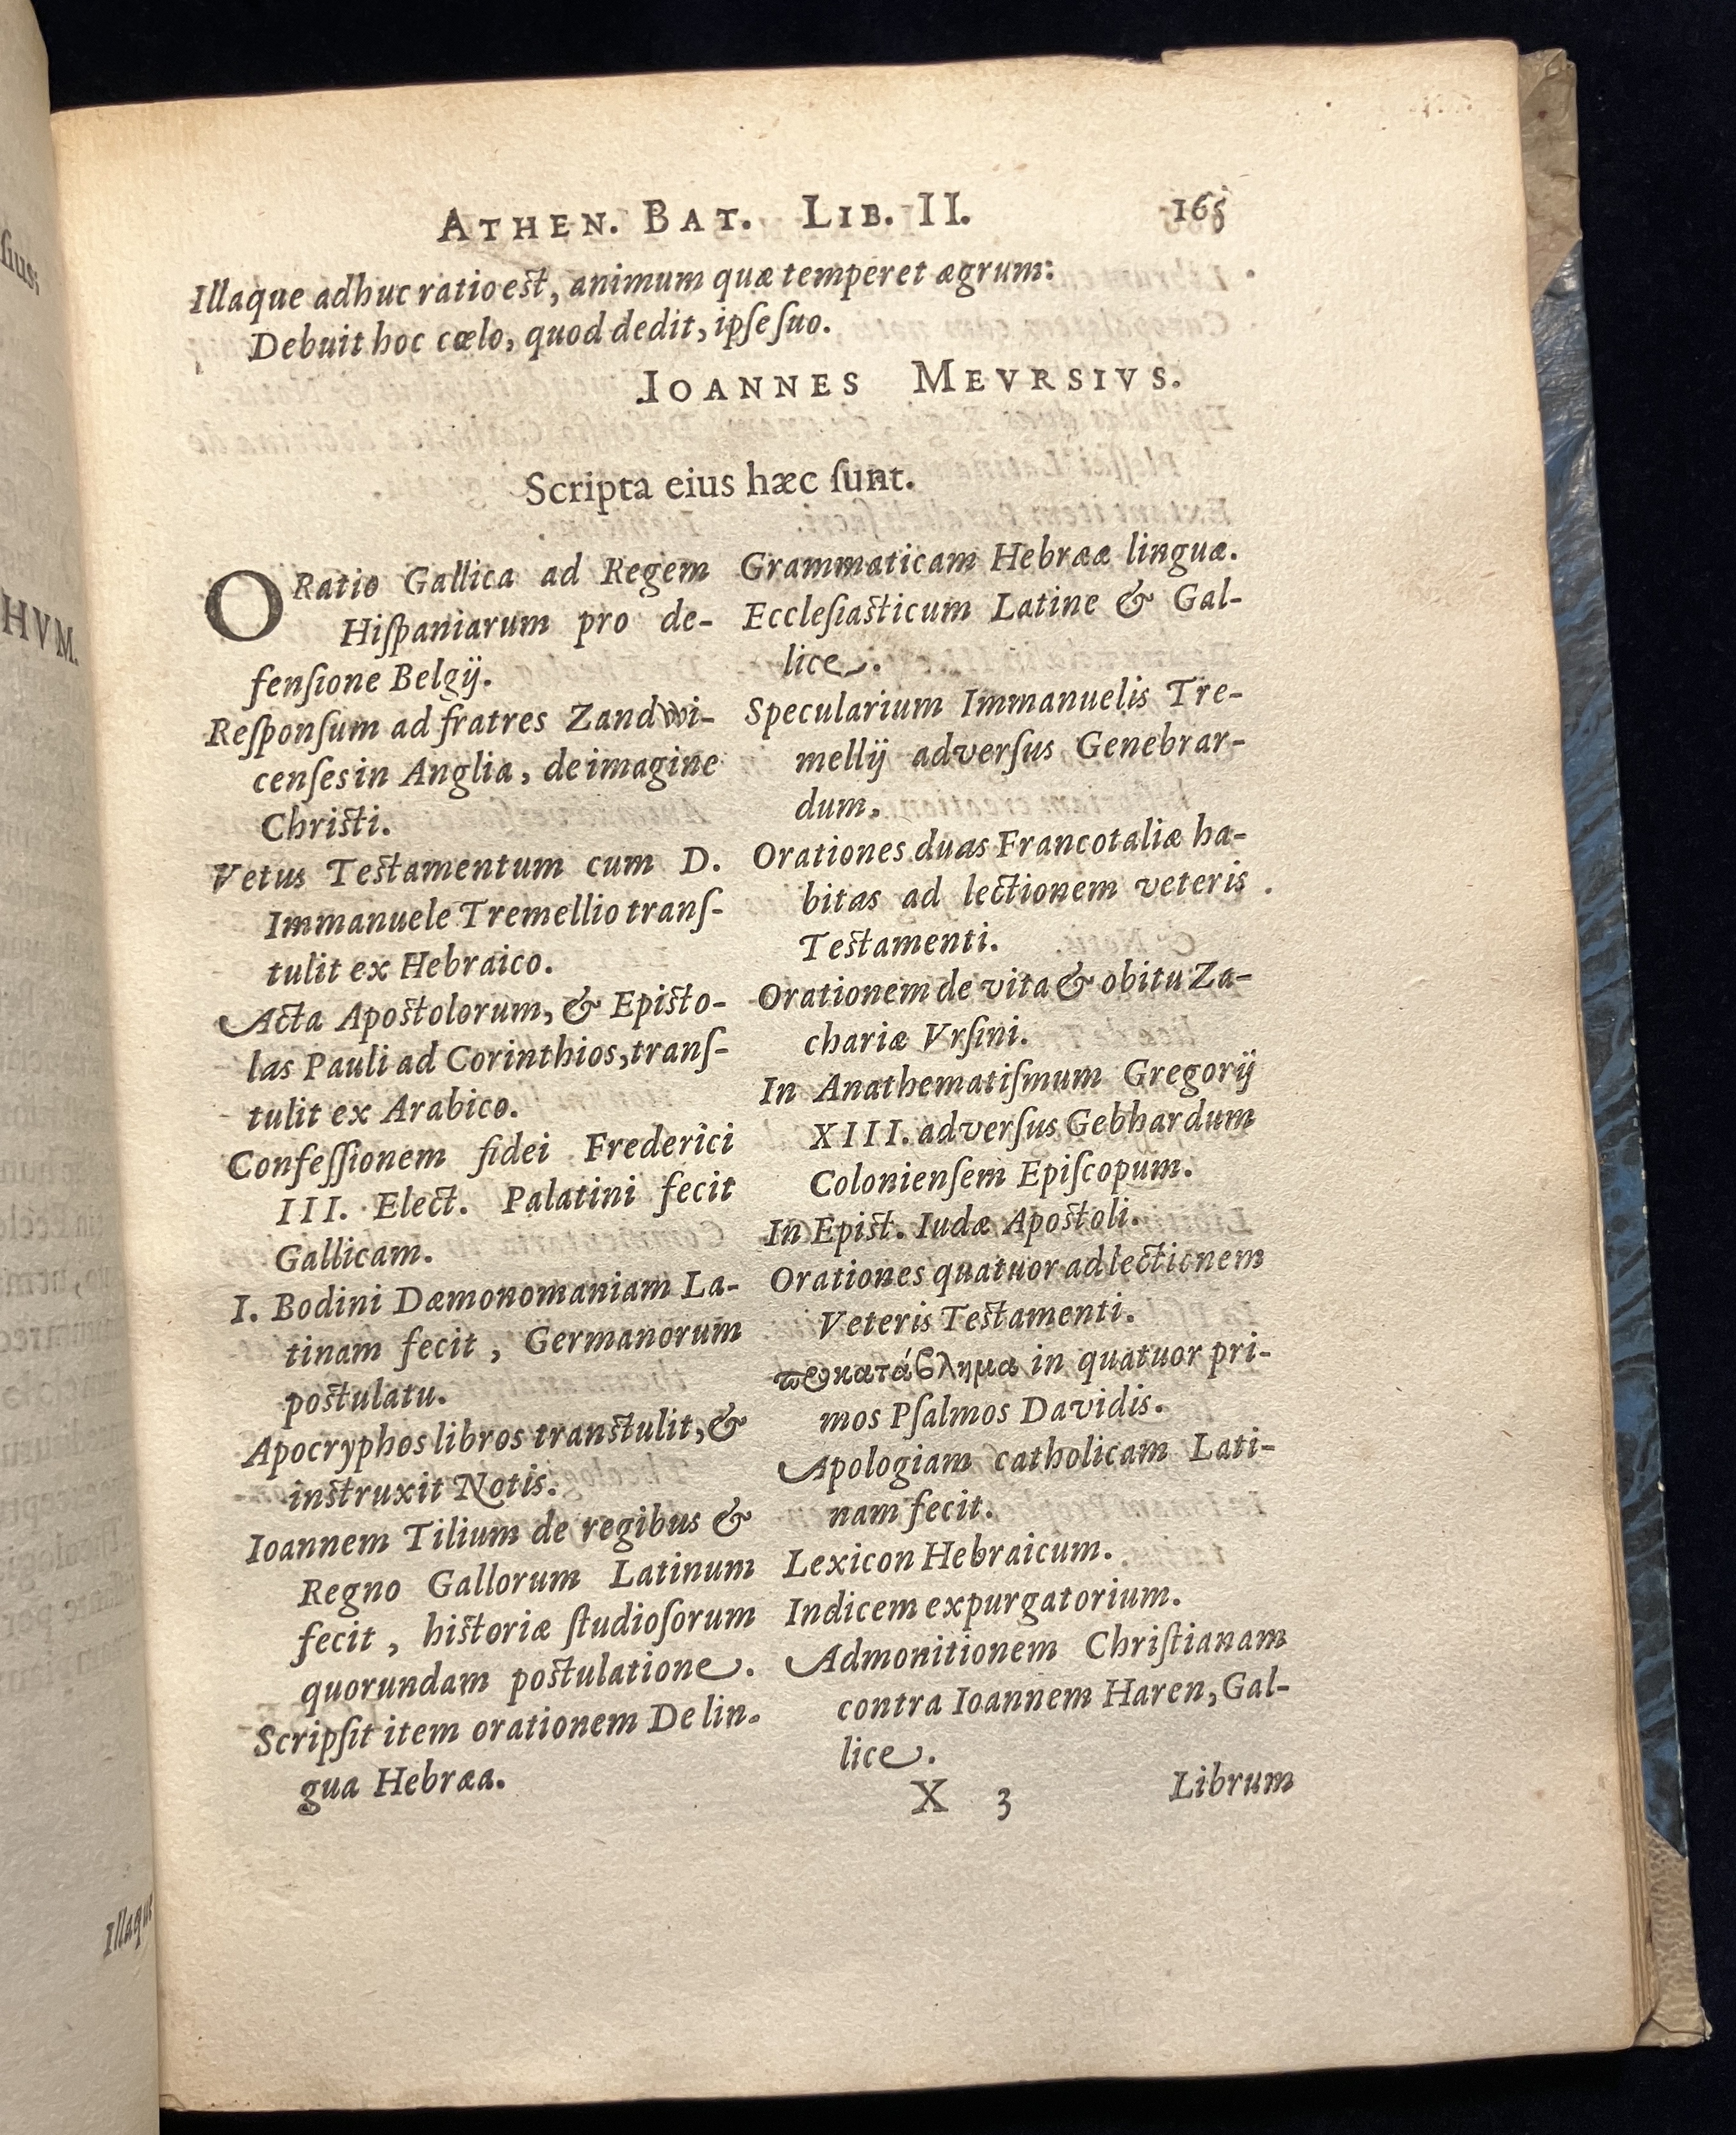 ATHEN. BAT. LIB. II. 165
Illaque adhuc ratio est, animum quæ temperet ægrum:
Debuit hoc cœlo, quod dedit, ipse suo.
IOANNES MEVRSIVS.
Scripta eius hæc ſunt.
ORatio Gallica ad Regem
Hiſpaniarum pro de-
fenſione Belgij.
Reſponſum ad fratres Zandwi-
cenſes in Anglia, de imagine
Chriſti.
Vetus Teſtamentum cum D.
Immanuele Tremellio tranſ-
tulit ex Hebraico.
Acta Apoſtolorum, & Epiſto-
las Pauli ad Corinthios, tranſ-
tulit ex Arabico.
Confeſſionem fidei Frederici
III. Elect. Palatini fecit
Gallicam.
I. Bodini Dæmonomaniam La-
tinam fecit, Germanorum
poſtulatu.
Apocryphos libros tranſtulit, &
inſtruxit Notis.
Ioannem Tilium de regibus &
Regno Gallorum Latinum
fecit, hiſtoriæ ſtudioſorum
quorundam poſtulatione.
Scripſit item orationem De lin-
gua Hebræa.
Grammaticam Hebrææ linguæ.
Eccleſiaſticum Latine & Gal-
lice.
Specularium Immanuelis Tre-
mellij adverſus Genebrar-
dum.
Orationes duas Francotaliæ ha-
bitas ad lectionem veteris
Teſtamenti.
Orationem de vita & obitu Za-
chariæ Vrſini.
In Anathematiſmum Gregorij
XIII. adverſus Gebhardum
Colonienſem Epiſcopum.
In Epiſt. Iudæ Apoſtoli.
Orationes quatuor ad lectionem
Veteris Teſtamenti.
προκατάβλημα in quatuor pri-
mos Pſalmos Davidis.
Apologiam catholicam Lati-
nam fecit.
Lexicon Hebraicum.
Indicem expurgatorium.
Admonitionem Chriſtianam
contra Ioannem Haren, Gal-
lice.
X 3 Librum
HVM.
Illaque